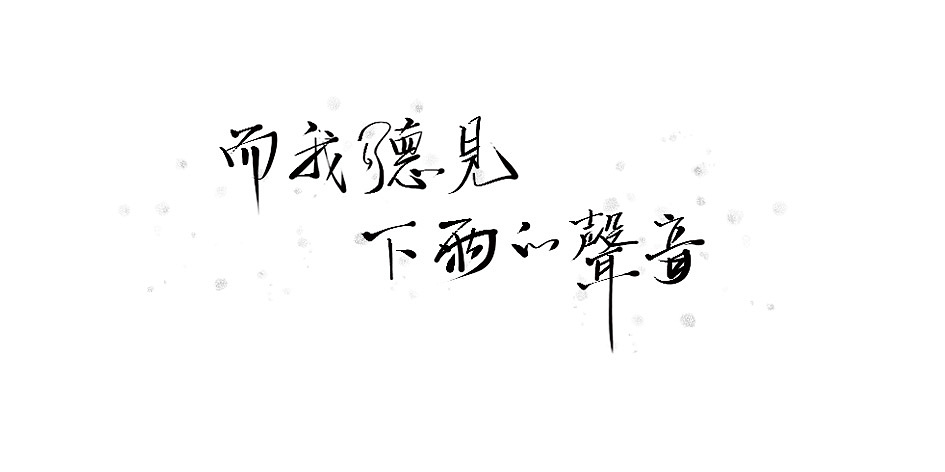 而我聽見
下雨的聲音